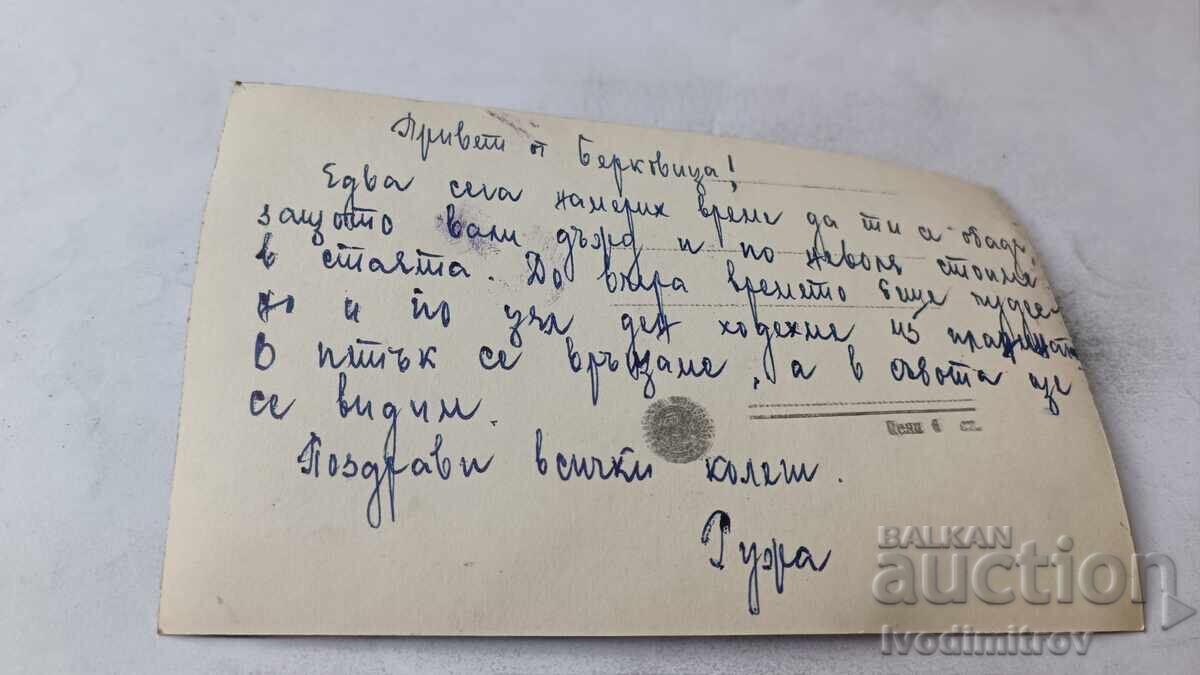 Привет от Берковица!
Едва сега намерих време да ти се обадя,
защото вали дъжд и по неволя стоиме
в стаята. До вчера времето беше чудес-
но и по цял ден ходехме из
В петък се връщаме, а в събота ще
се видим.
Поздрави всички колеги.
Ружа
Цена 6 ст.
BALKAN
auction
Ivodimitrov